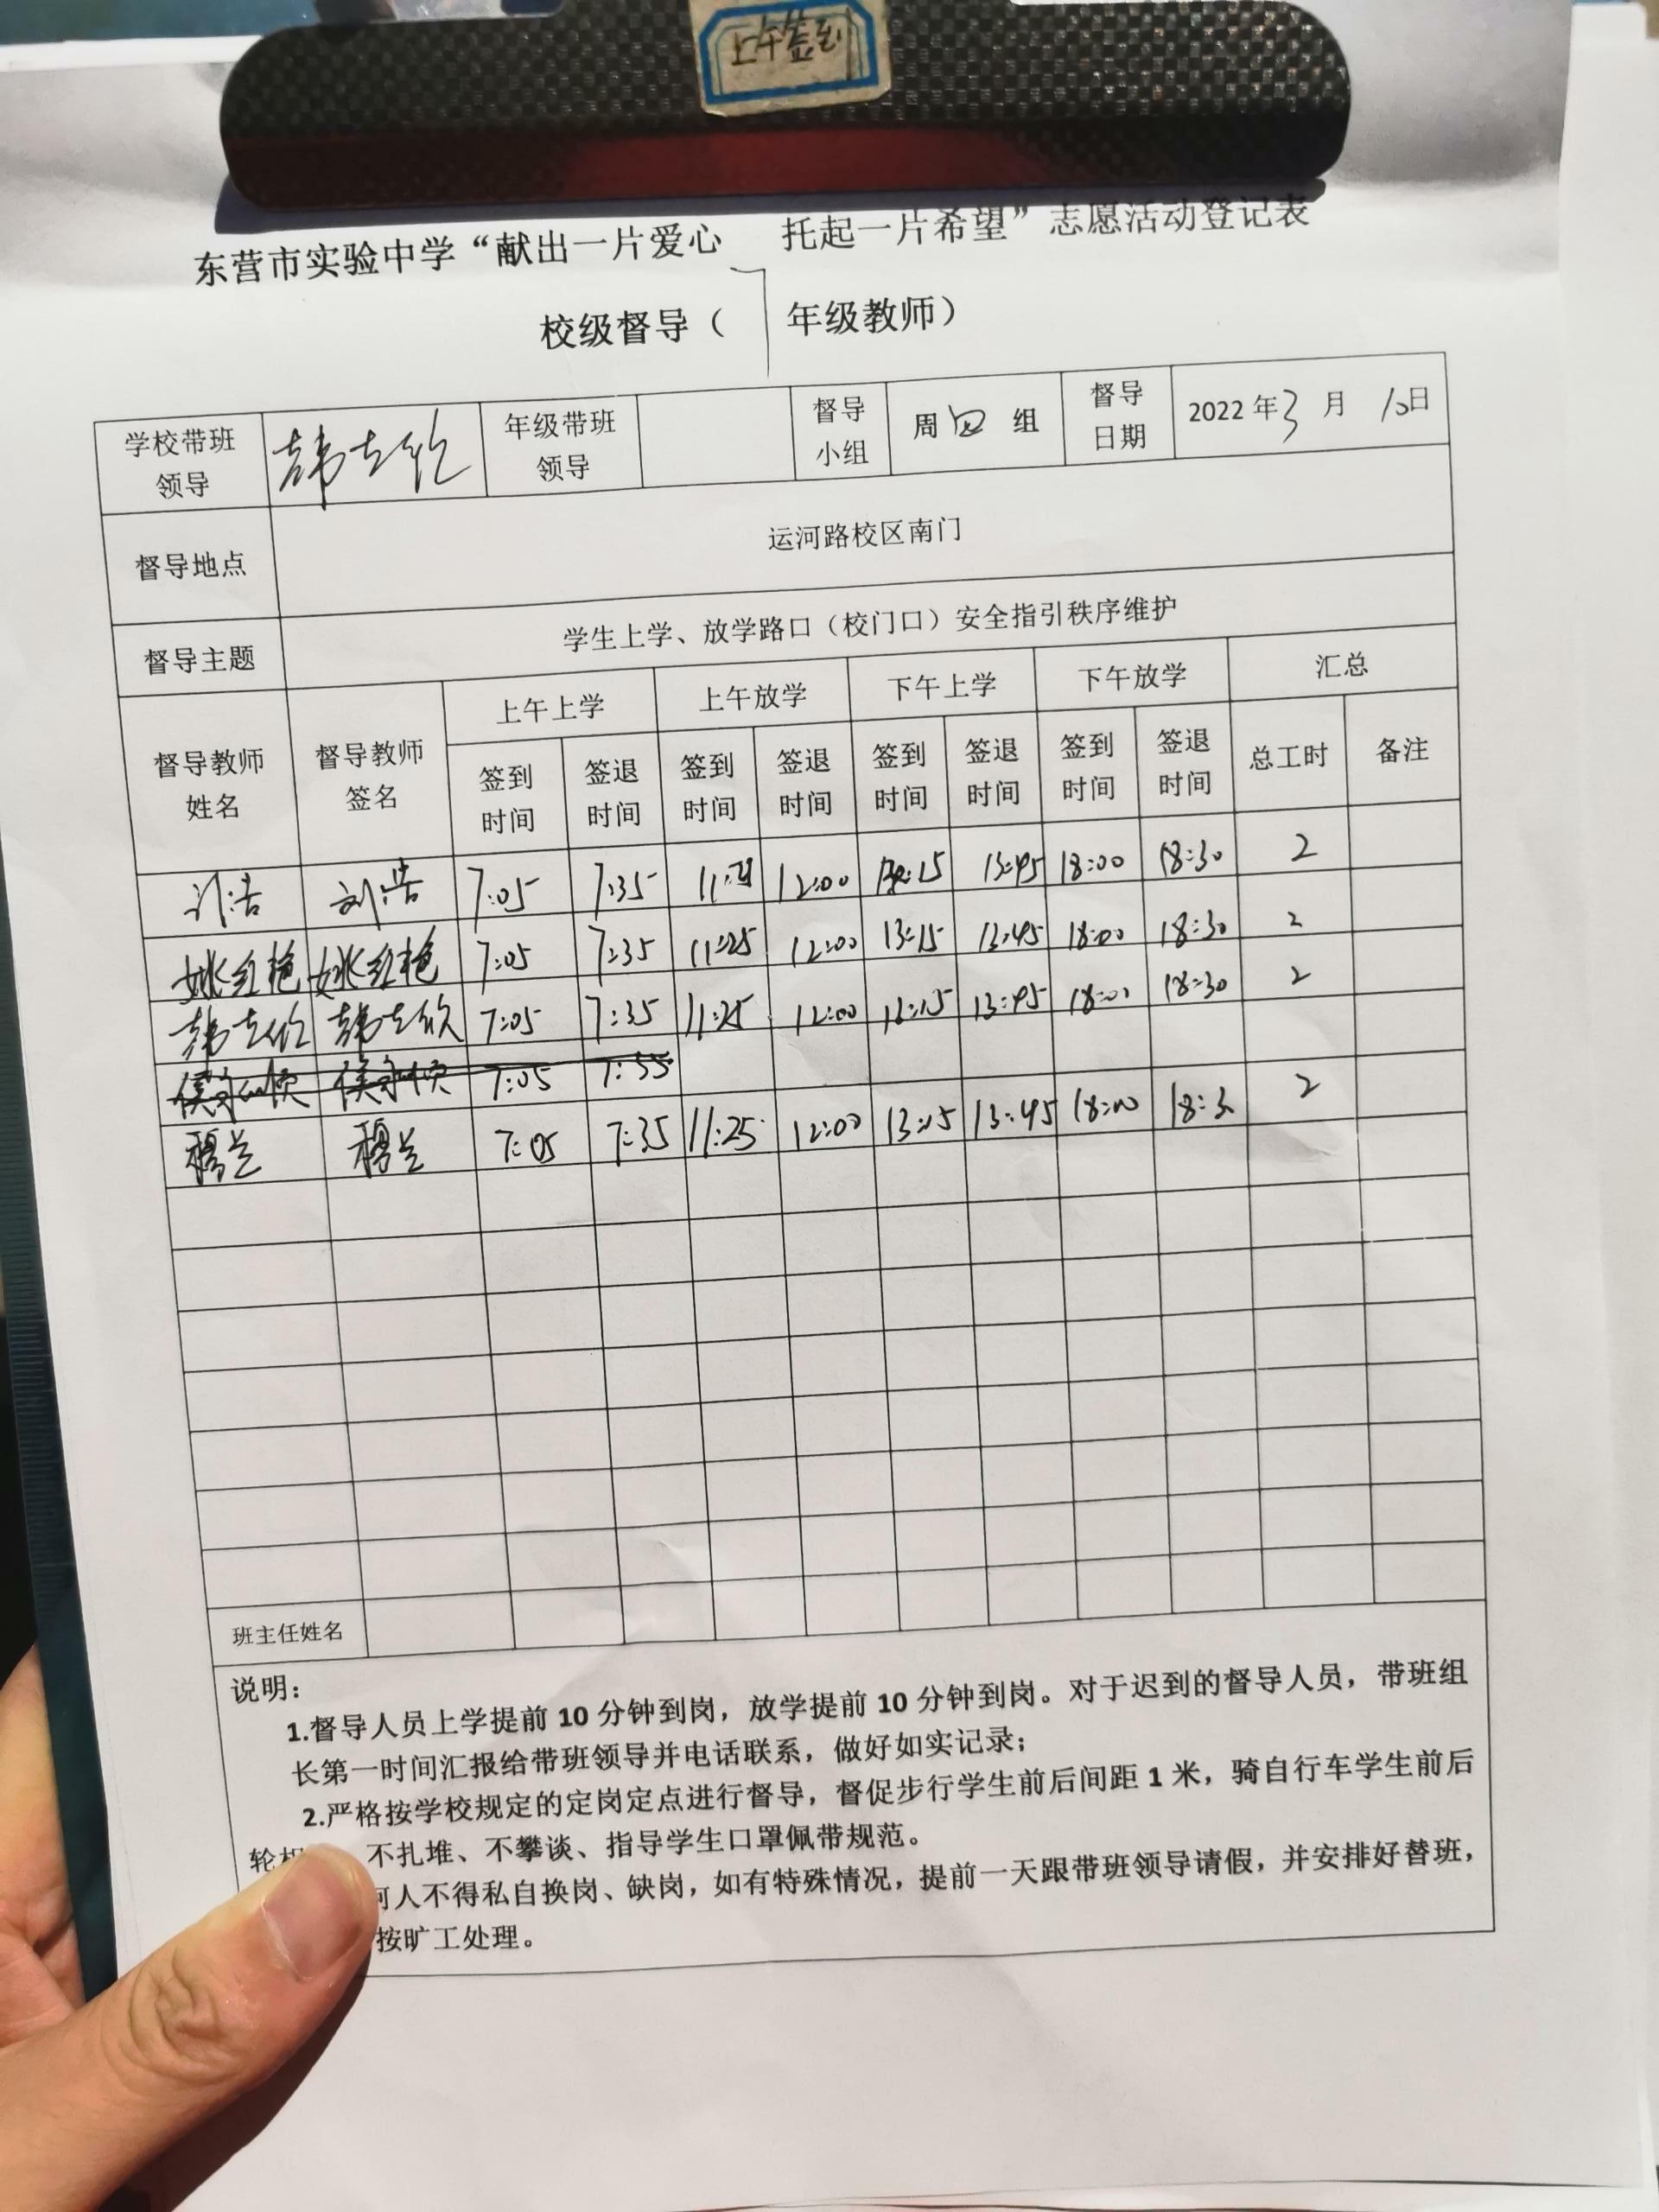 上午签到
东营市实验中学“献出一片爱心 托起一片希望”志愿活动登记表
校级督导（7年级教师）
学校带班领导 年级带班领导 督导小组 周四组 督导日期 2022年3月10日
督导地点 运河路校区南门
督导主题 学生上学、放学路口（校门口）安全指引秩序维护
督导教师姓名 督导教师签名 上午上学 上午放学 下午上学 下午放学 汇总
签到时间 签退时间 签到时间 签退时间 签到时间 签退时间 签到时间 签退时间 总工时 备注
刘浩 刘浩 7:05 7:35 12:00 13:45 18:00 18:30 2
姚红艳 姚红艳 7:05 7:35 11:25 12:00 13:15 13:45 18:00 18:30 2
7:05 7:35 11:25 12:00 13:15 13:45 18:00 18:30 2
7:05 7:35
7:05 7:35 11:25 12:00 13:15 13:45 18:00 18:30 2
班主任姓名
说明：
1.督导人员上学提前10分钟到岗，放学提前10分钟到岗。对于迟到的督导人员，带班组
长第一时间汇报给带班领导并电话联系，做好如实记录；
2.严格按学校规定的定岗定点进行督导，督促步行学生前后间距1米，骑自行车学生前后
轮 不扎堆、不攀谈、指导学生口罩佩带规范。
何人不得私自换岗、缺岗，如有特殊情况，提前一天跟带班领导请假，并安排好替班，
按旷工处理。